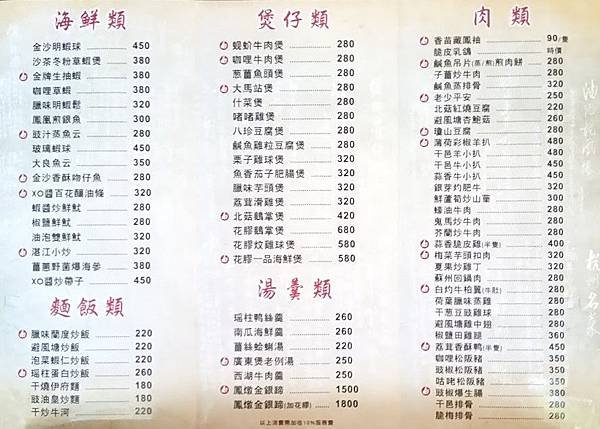 海鮮類
金沙明蝦球 450
沙茶冬粉草蝦煲 380
金牌生抽蝦 380
咖哩草蝦 380
臘味明蝦鬆 320
鳳凰煎銀魚 300
豉汁蒸魚云 320
玻璃蝦球 450
大良魚云 350
金沙香酥吻仔魚 280
XO醬百花釀油條 320
蝦醬炒鮮魷 280
椒鹽鮮魷 280
油泡雙鮮魷 320
湛江小炒 320
薑蔥野菌爆海參 380
XO醬炒帶子 450
麵飯類
臘味蘭度炒飯 220
避風塘炒飯 220
泡菜蝦仁炒飯 220
瑤柱蛋白炒飯 260
干燒伊府麵 180
豉油皇炒麵 180
干炒牛河 220
煲仔類
蜆蚧牛肉煲 280
咖哩牛肉煲 280
蔥薑魚頭煲 280
大馬站煲 280
什菜煲 280
啫啫雞煲 280
八珍豆腐煲 280
鹹魚雞粒豆腐煲 280
栗子雞球煲 320
魚香茄子肥腸煲 280
臘味芋頭煲 320
荔茸滑雞煲 280
北菇鵝掌煲 420
花膠鵝掌煲 680
花膠炆雞球煲 580
花膠一品海鮮煲 580
湯羹類
瑤柱鴨絲羹 260
南瓜海鮮羹 260
薑絲蛤蜊湯 200
廣東煲老例湯 250
西湖牛肉羹 250
鳳燉金銀蹄 1500
鳳燉金銀蹄(加花膠) 1800
以上消費需加收10%服務費
肉類
香茜藏鳳袖 90/隻
脆皮乳鴿 時價
鹹魚吊片(蒸/煎)煎肉餅 280
子薑炒牛肉 280
鹹魚蒸排骨 320
老少平安 250
北菇紅燒豆腐 220
避風塘杏鮑菇 260
瓊山豆腐 280
薄荷彩椒羊扒 480
干邑羊小扒 480
干邑牛小扒 450
蒜香牛小扒 450
銀芽灼肥牛 350
鮮蘆筍炒山葷 300
蠔油牛肉 280
鬼馬炒牛肉 280
芥蘭炒牛肉 280
蒜香脆皮雞(半隻) 400
梅菜芋頭扣肉 320
夏果炒雞丁 320
蘇州回鍋肉 280
白灼牛柏翼(牛肚) 280
荷葉臘味蒸雞 280
干蔥豆豉雞球 280
避風塘雞中翅 280
椒鹽田雞腿 360
荔茸香酥鴨(半隻) 450
咖哩松阪豬 350
豉椒松阪豬 350
咕咾松阪豬 360
豉椒爆生腸 380
干邑排骨 280
脆梅排骨 280